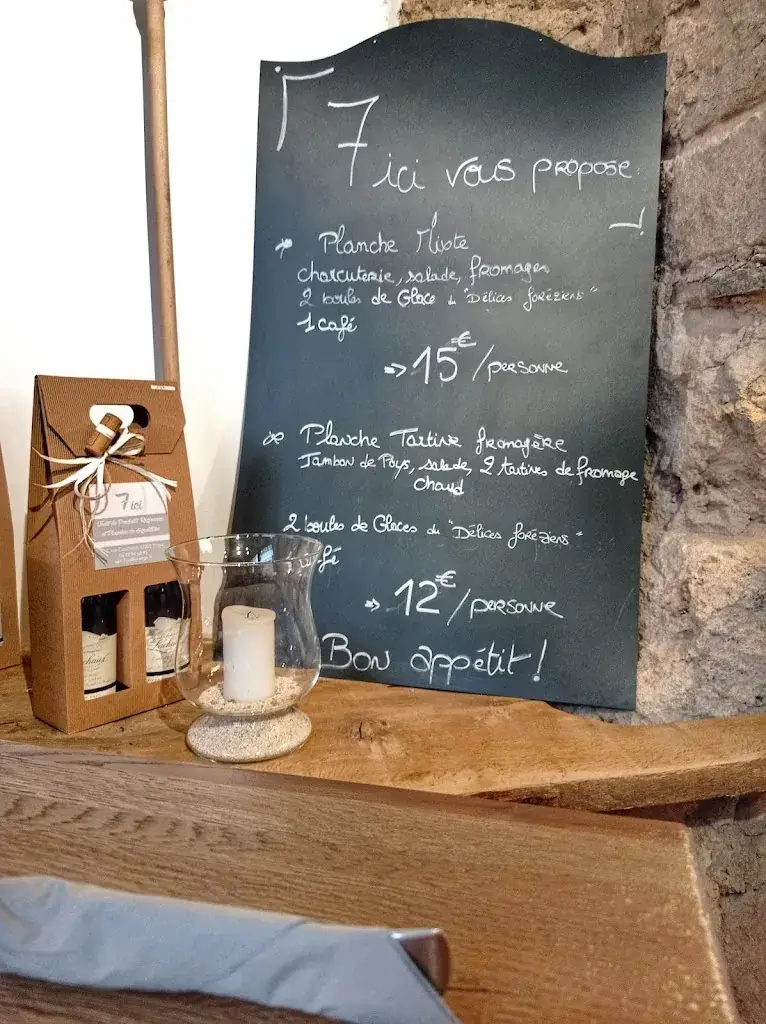 7 ici vous propose
Planche Mixte
charcuterie, salade, fromages
2 boules de Glace du "Délices foréziens"
1 café
=> 15€/personne
Planche Tartine fromagère
Jambon de Pays, salade, 2 tartines de fromage
chaud
2 boules de Glaces du "Délices foréziens"
=> 12€/personne
Bon appétit!
7 ici